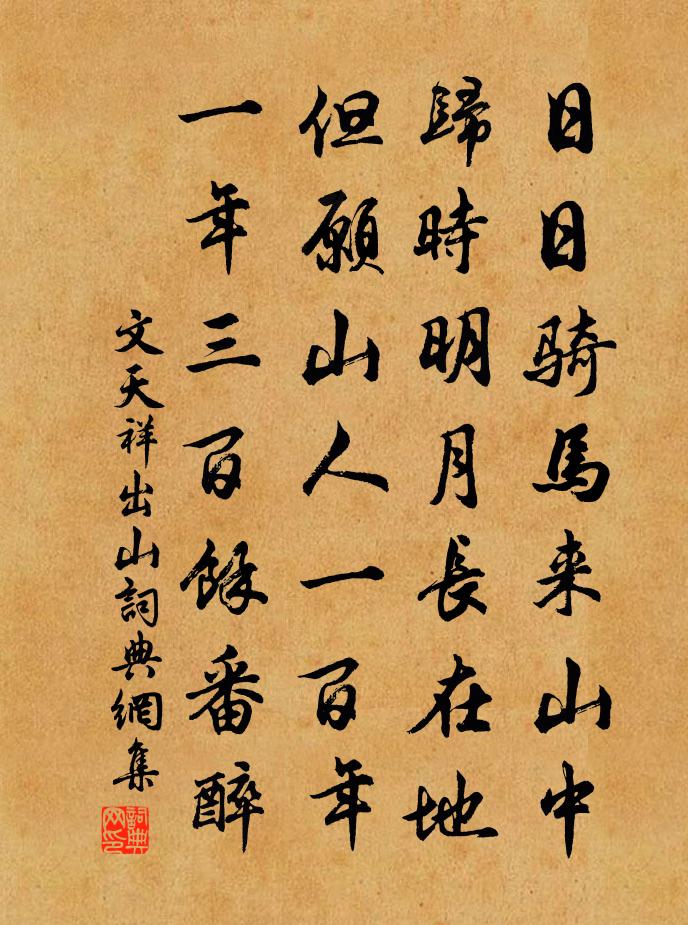 日日骑馬来山中
歸時明月長在地
但願山人一百年
一年三百餘番醉
文天祥出山詞典網集
詞典网印